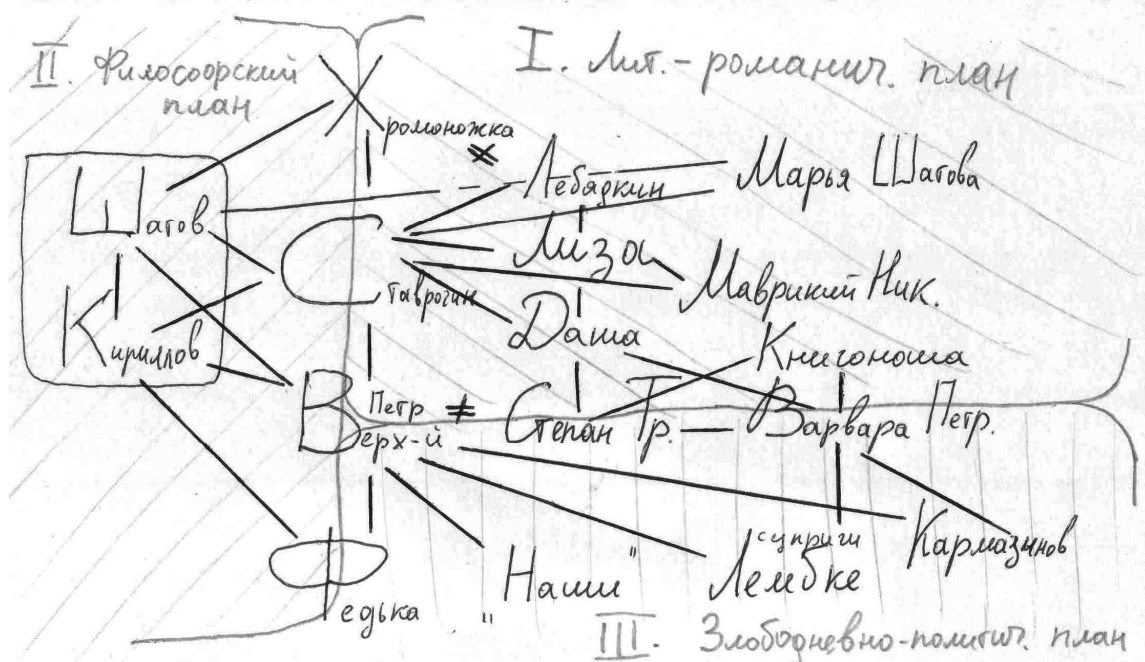 II. Философский
план
I. Лит.-романич. план
Хромоножка
≠
Лебядкин
Марья Шатова
Шатов
Лиза
Ставрогин
Маврикий Ник.
Кириллов
Даша
Книгоноша
Петр
Верх-й
≠
Степан Тр.
Варвара Петр.
Федька
"Наши"
супруги
Лембке
Кармазинов
III. Злободневно-политич. план